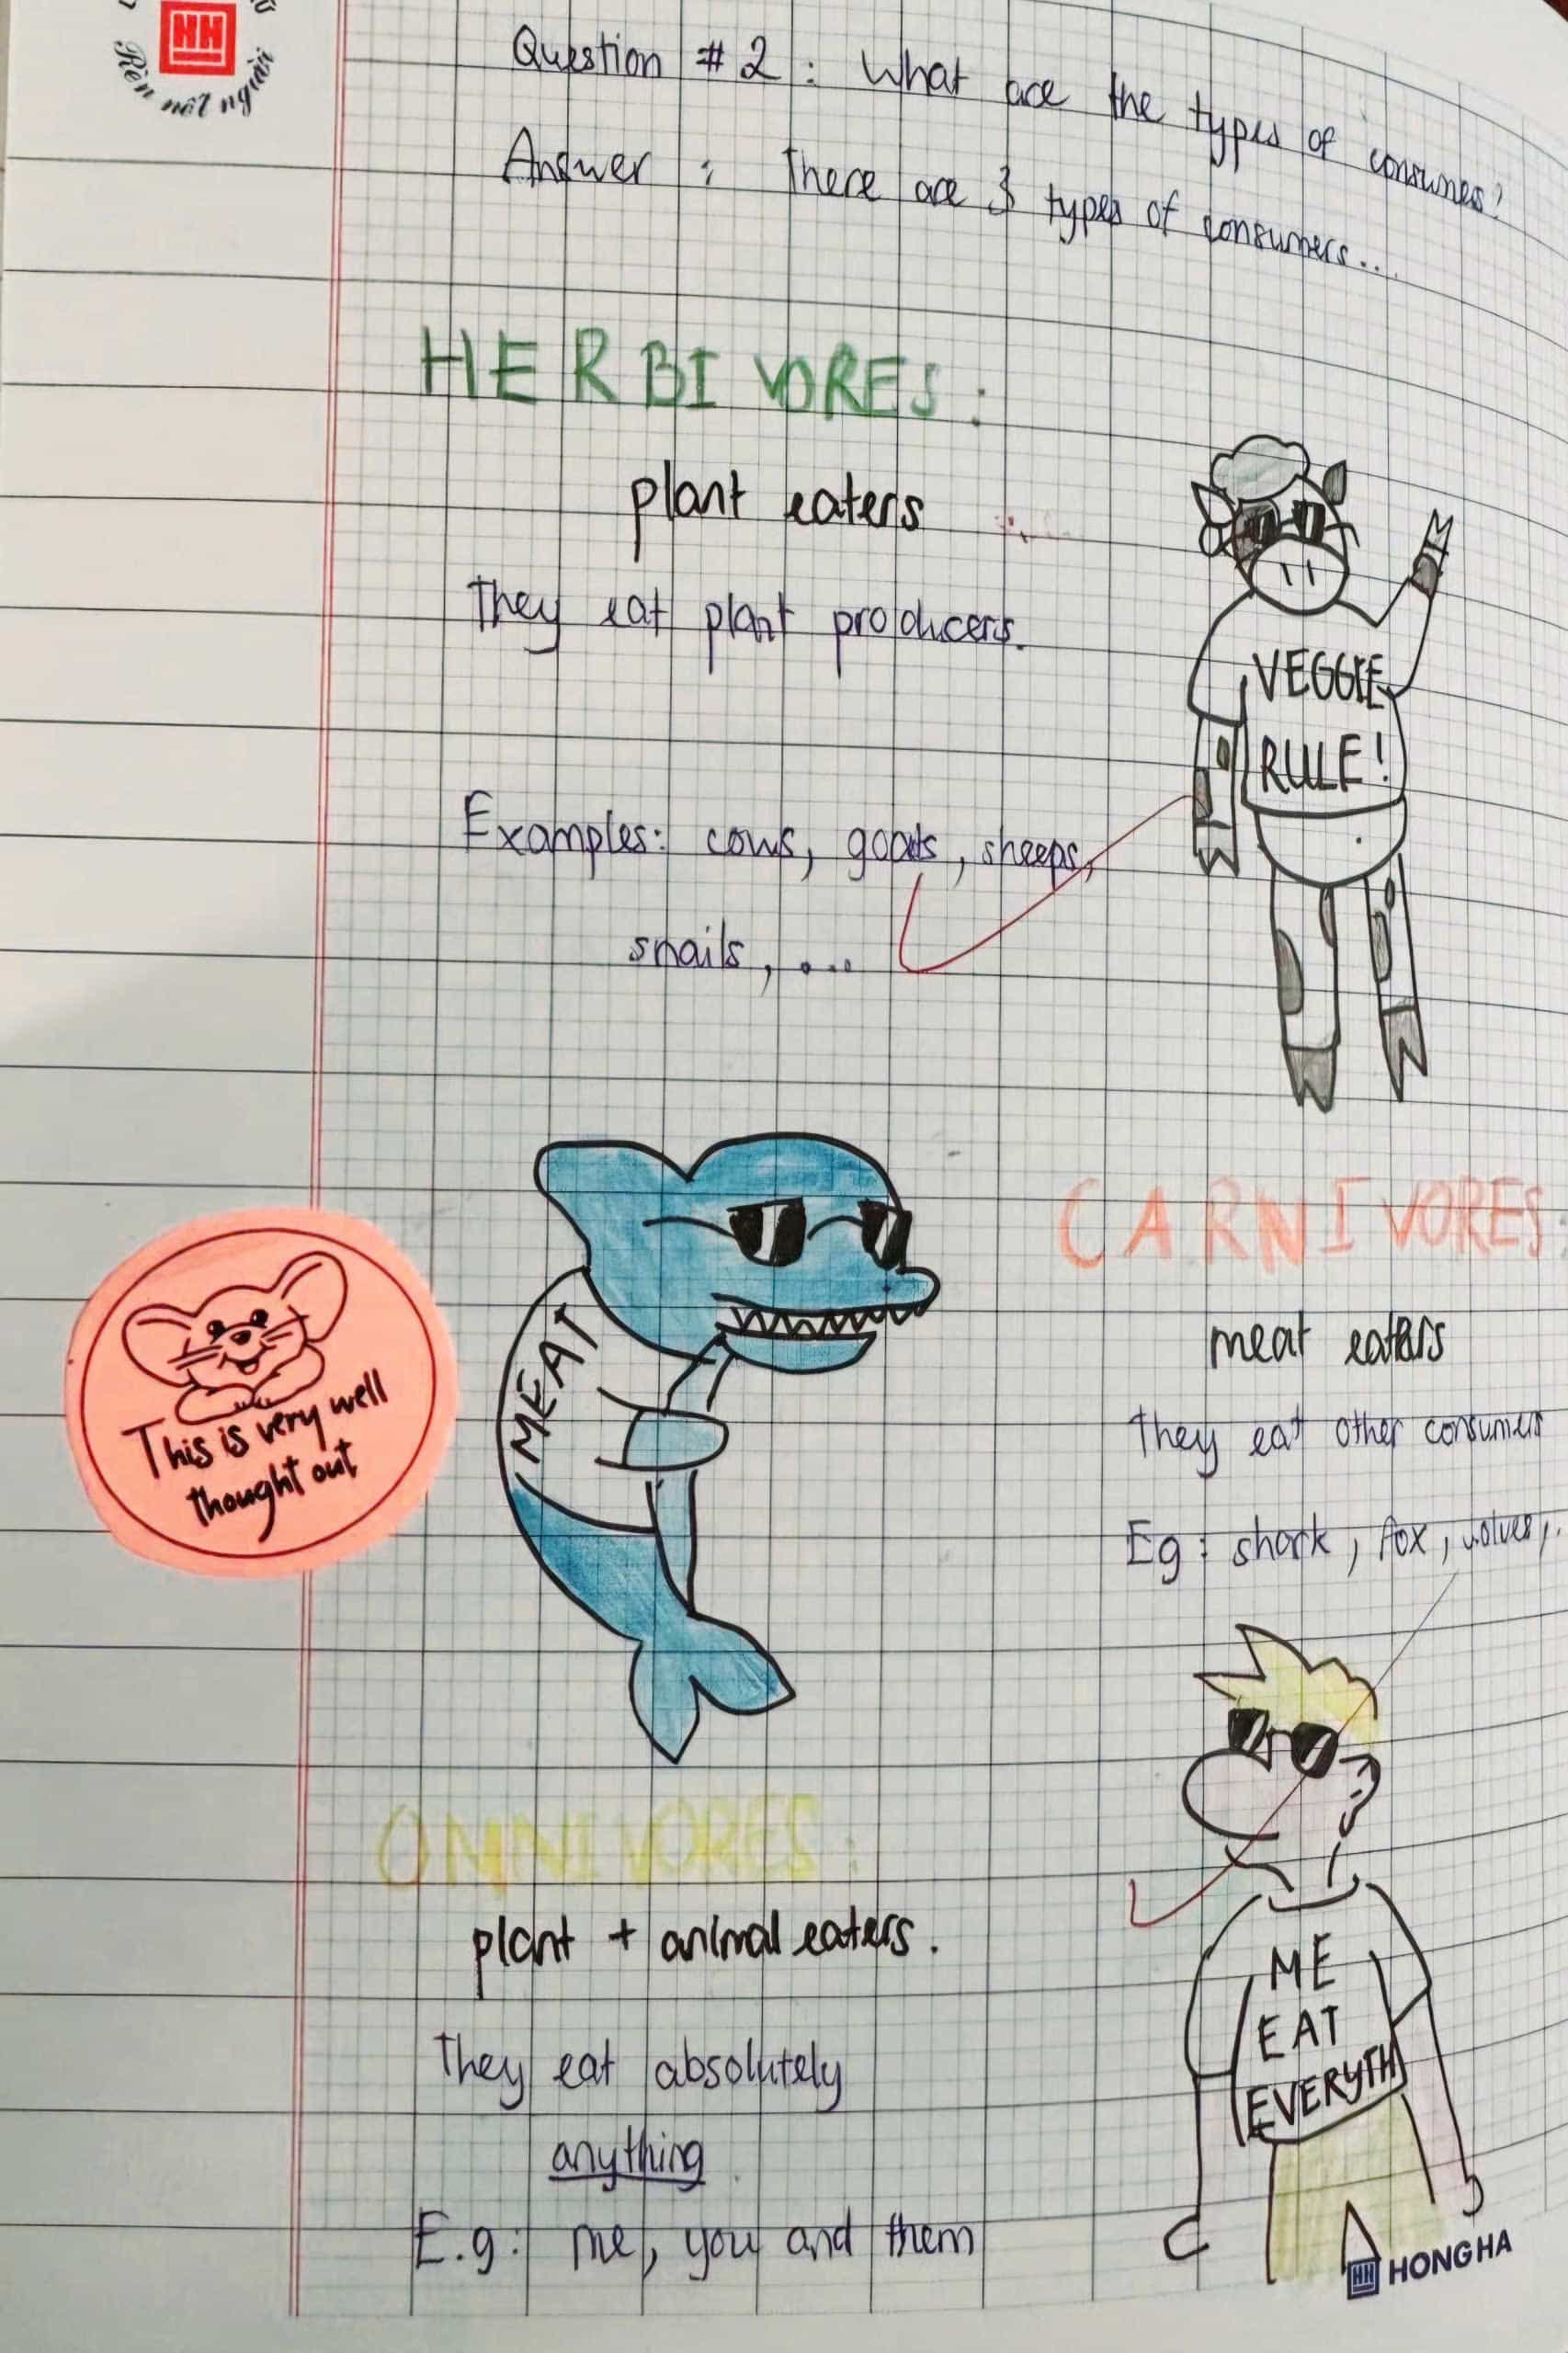 HH
Rèn nết người
Question # 2 : What are the types of consumers?
Answer : There are 3 types of consumers...
HERBIVORES:
plant eaters
They eat plant producers.
VEGGIE
RULE!
Examples: cows, goats, sheeps,
snails, ...
CARNIVORES:
MEAT
meat eaters
This is very well
thought out
They eat other consumers
Eg: shark, fox, wolves,..
OMNIVORES:
plant + animal eaters.
ME
EAT
EVERYTH
They eat absolutely
anything.
E.g: me, you and them
HH HONG HA